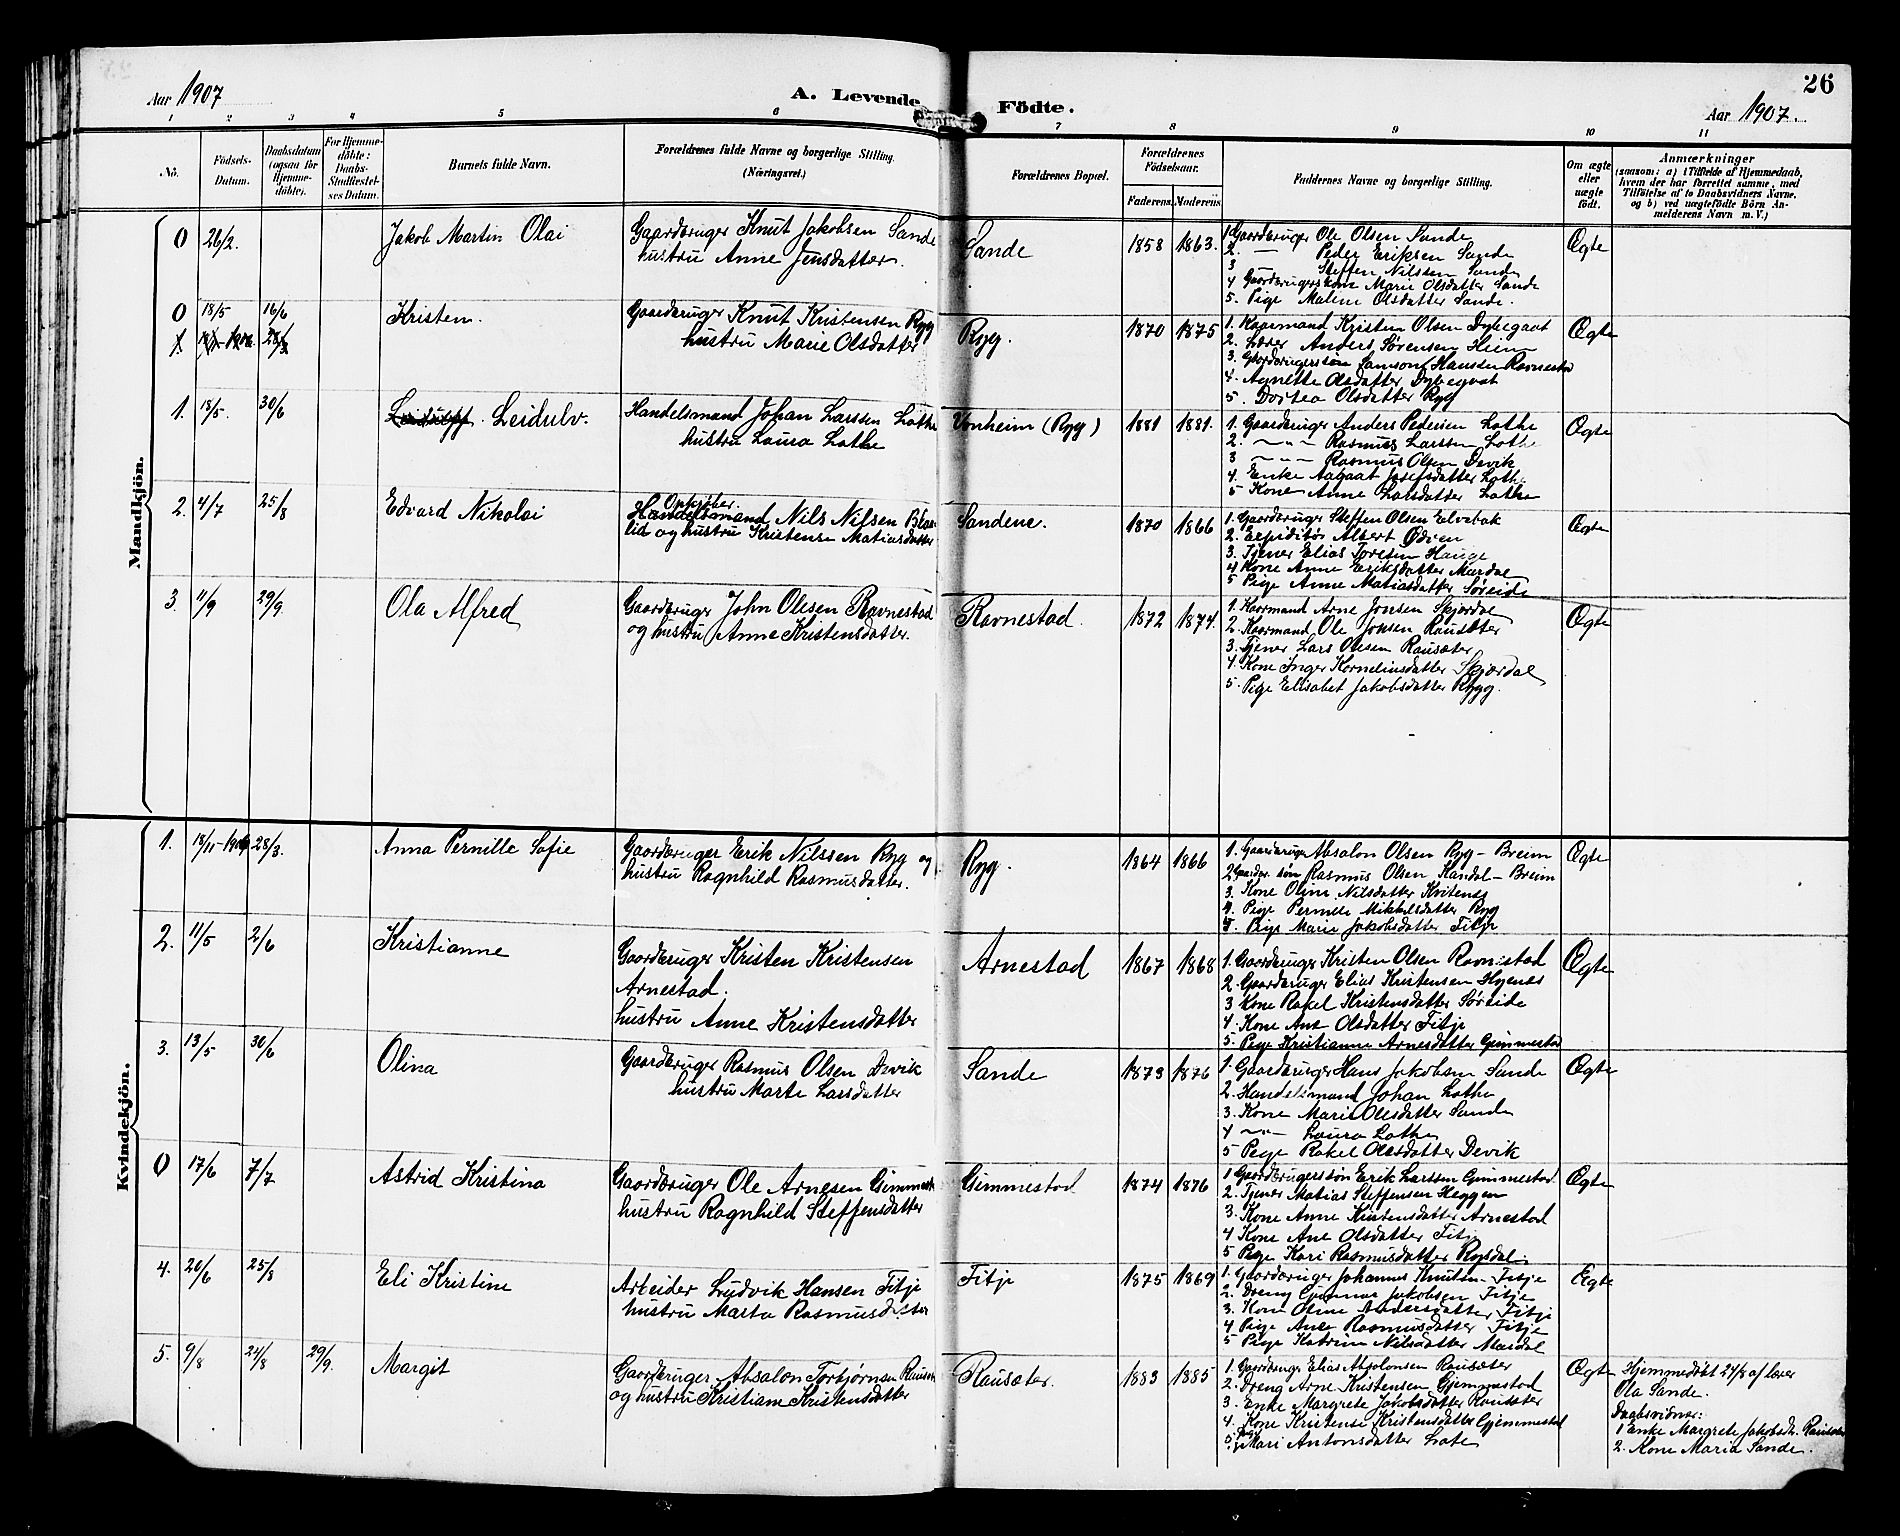 26
Aar 1907
A. Levende
Födte.
Aar 1907.
1 2 3 4 5 6 7 8 9 10 11
No.
Födsels-
Datum.
Daabsdatum
(ogsaa for
Hjemme-
döbte).
For Hjemme-
döbte:
Daabs-
Stadfæstel-
ses Datum.
Barnets fulde Navn.
Forældrenes fulde Navne og borgerlige Stilling.
(Næringsvei.)
Forældrenes Bopæl.
Forældrenes
Födselsaar.
Faderens. Moderens.
Faddernes Navne og borgerlige Stilling.
Om ægte
eller
uægte
födt.
Anmærkninger
(saasom: a) i Tilfælde af Hjemmedaab,
hvem der har forrettet samme, med
Tilföielse af to Daabsvidners Navne,
og b) ved uægtefödte Börn An-
melderens Navn m. V.)
Mandkjön.
0 26/2. Jakob Martin Olai
Gaardbruger Knut Jakobsen Sande
hustru Anne Jensdatter.
Sande 1858 1863.
1 Gaardbruger Ole Olsen Sande
2. — Peder Eriksen Sande
3 — Steffen Nilssen Sande
4 Gaardbrugerskone Marie Olsdatter Sande
5. Pige Maline Olsdatter Sande.
Ægte
0 18/5 16/6 Kristen.
1.
Gaardbruger Knut Kristensen Ryg
hustru Marie Olsdatter
Ryg. 1870 1875
1. Kaarmand Kristen Olsen Dybegaat
2. Lærer Anders Sørensen Heim
3. Gaardbrugerssøn Samson Hansen Ravnestad
4. Agnette Olsdatter Dybegaat
5. Dortea Olsdatter Ryg
Ægte
1. 18/5. 30/6 Leidulv.
Handelsmand Johan Larssen Lothe
hustru Laura Lothe
Vonheim (Ryg) 1881 1881.
1. Gaardbruger Anders Pedersen Lothe
2. —"— Rasmus Larssen Lothe
3 —"— Rasmus Olsen Devik
4. Enke Aagaat Josefsdatter Lothe
5 Kone Anne Larsdatter Lothe
Ægte
2. 4/7 25/8 Edvard Nikolai
Opkjøber
Handelsmand Nils Nilsen Blaa-
lid og hustru Kristense Matiasdatter
Sandene. 1870 1866
1. Gaardbruger Steffen Olsen Eelvebak
2. Expiditør Albert Ødven
3. Tjener Elias Toresen Hauge
4 Kone Anne Eriksdatter Mardal
5 Pige Anne Matiasdatter Søreide
Ægte
3. 11/9 29/9. Ola Alfred
Gaardbruger John Olesen Ravnestad
og hustru Anne Kristensdatter.
Ravnestad. 1872 1874.
1. Kaarmand Arne Jonsen Skjørdal
2. Kaarmand Ole Jonsen Rausæter
3. Tjener Lars Olesen Rausæter
4. Kone Inger Korneliusdatter Skjørdal
5. Pige Elisabet Jakobsdatter Rygg.
Ægte
Kvindekjön.
1. 18/11-1906 28/3. Anna Pernille Sofie
Gaardbruger Erik Nilssen Ryg og
hustru Ragnhild Rasmusdatter.
Ryg. 1864 1866
1. Gaardbruger Absalon Olsen Ryg - Breim
2 Gaardbr. søn Rasmus Olsen Kandal - Breim
3. Kone Oline Nilsdatter Kvitenes
4. Pige Pernille Mikkelsdatter Ryg
5. Pige Marie Jakobsdatter Fitje
Ægte
2. 11/5 2/6 Kristianne
Gaardbruger Kristen Kristensen
Arnestad.
hustru Anne Kristensdatter
Arnestad 1867 1868
1. Gaardbruger Kristen Olsen Ravnestad
2. Gaardbruger Elias Kristensen Hyenes
3 Kone Rakel Kristensdatter Søreide
4. Kone Ane Olsdatter Fitje
5. Pige Kristianne Arnesdatter Gimmestad
Ægte
3. 13/5 30/6 Olina
Gaardbruger Rasmus Olsen Devik
hustru Marte Larsdatter
Sande 1873 1876
1. Gaardbruger Hans Jakobsen Sande
2. Handelsmand Johan Lothe
3. Kone Marie Olesdatter Sande
4 —"— Laura Lothe
5 Pige Rakel Olesdatter Devik
Ægte
0 17/6 7/7 Astrid Kristina
Gaardbruger Ole Arnesen Gimmestad
hustru Ragnhild Steffensdatter
Gimmestad 1874 1876
1 Gaardbrugerssøn Erik Larssen Gimmestad
2. Tjener Matias Steffensen Heggen
3. Kone Anne Kristensdatter Arnestad
4 Kone Ane Olsdatter Fitje
5 Pige Kari Rasmusdatter Rygdal.
Ægte
4. 20/6 25/8 Eli Kristine
Arbeider Ludvik Hansen Fitje
hustru Marta Rasmusdatter
Fitje 1875 1869
1. Gaardbruger Johannes Knutsen Fitje
2. Dreng Gunnar Jakobsen Fitje
3. Kone Oline Andersdatter Fitje
4 Pige Ane Rasmusdatter Fitje
5 Pige Katrine Nilsdatter Mardal
Ægte
5. 9/8 24/8 29/9. Margit
Gaardbruger Absalon Torbjørnsen Rausæt
og hustru Kristiane Kristensdatter
Rausæter. 1883 1885
1. Gaardbruger Elias Absolonsen Rausæter
2. Dreng Arne Kristensen Gjemmestad
3. Enke Margrete Jakobsdatter Rausæter
4. Kone Kristense Kristensdatter Gjemmestad
5. Pige Mari Antonsdatter Lote
Ægte
Hjemmedøbt 24/8 af lærer
Ola Sande.
Daabsvidner:
1 Enke Margrete Jakobsdt. Rausæter
2. Kone Maria Sande.